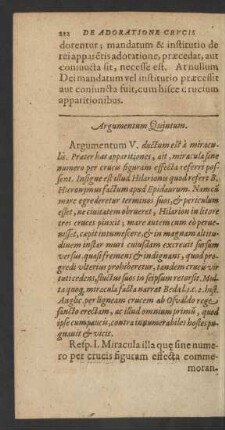 212 DE ADORATIONE CRVCIS
dorentur; mandatum & institutio de
rei apparẽtis adoratione, præcedat, aut
coniuncta sit, necesse est. At nullum
Dei mandatum vel institutio præcessit
aut coniuncta fuit, cum hisce crucium
apparitionibus.
Argumentum Quintum.
Argumentum V. ductum est à miracu-
lis. Præter has apparitiones, ait, miracula sine
numero per crucis figuram effecta referri pos-
sent. Insigne est illud Hilarionis quod refert B.
Hieronymus factum apud Epidaurum. Nam cũ
mare egrederetur terminos suos, & periculum
esset, ne ciuitatem obrueret, Hilarion in litore
tres cruces pinxit; mare autem cum eò perue-
nisset, cœpit intumescere, & in magnam altitu-
dinem instar muri cuiusdam excreuit sursum
versus, quasi fremens & indignans, quod pro-
gredi vlterius prohiberetur, tandem crucis vir-
tuti cedens, fluctus suos in seipsum retorsit. Mul-
ta quoq, miracula facta narrat Beda l. 3. c. 2. hist.
Anglic. per ligneam crucem ab Osvvaldo rege
sancto erectam, ac illud omnium primũ, quod
ipse cum paucis, contra innumerabiles hostes pu-
gnauit & vicit.
Resp. I. Miracula illa quæ sine nume-
ro per crucis figuram effecta comme-
moran-